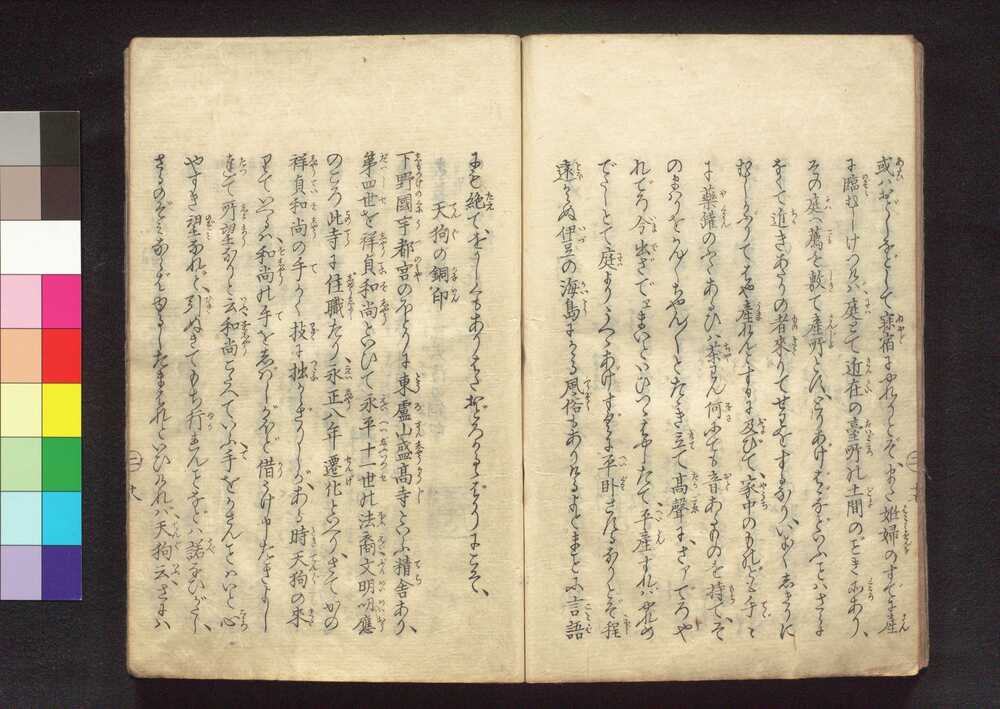 に臨むしけつれバ庭とて近在の臺所の土間のごとき所あり、
その庭へ薦を敷て産所とし、とりあげばゞなどいふことハさらに
なくて近きあたりの者來りてせわをするなり、いよ〳〵しきりに
むしかぶりてはや産れんとするに及びて、家中のものども手に〳〵
に藥鑵のふたあるひハ茶わん何にても音あるものを持て、そ
のまハりをかん〳〵ちやん〳〵とたゝき立て高聲に、さァでろや
れでろ今出ざでェまいといひつゝはやしたて、平産すれバやれめ
でたしとて庭より うへゝあげすぐに平臥さするなりとぞ程
遠からぬ伊豆の海島にかゝる風俗もありけるよとまことに言語
にも絶てをかしくもありまたおどろかるゝばかりにこそ、
天狗の銅印
下野國宇都宮の ほとりに東盧山盛高寺といふ精舎あり、
第四世を祥貞和尚といひて永平十一世の法裔文明明應
のころ此寺に住職たり、永正八年遷化といへり、さてかの
祥貞和尚の手かく技に拙からざりしが、ある時天狗の來
りていへらく、和尚の手をしばしがほど借うけ申たきよし
達て所望なりと云和尚こたへていふ手をかさんことハいと心
やすき望なれど、引ぬきてもち行まんとならバ諾なひがたし、
さるのぞみならばゆるしたまハれといひければ、天狗云さにハ